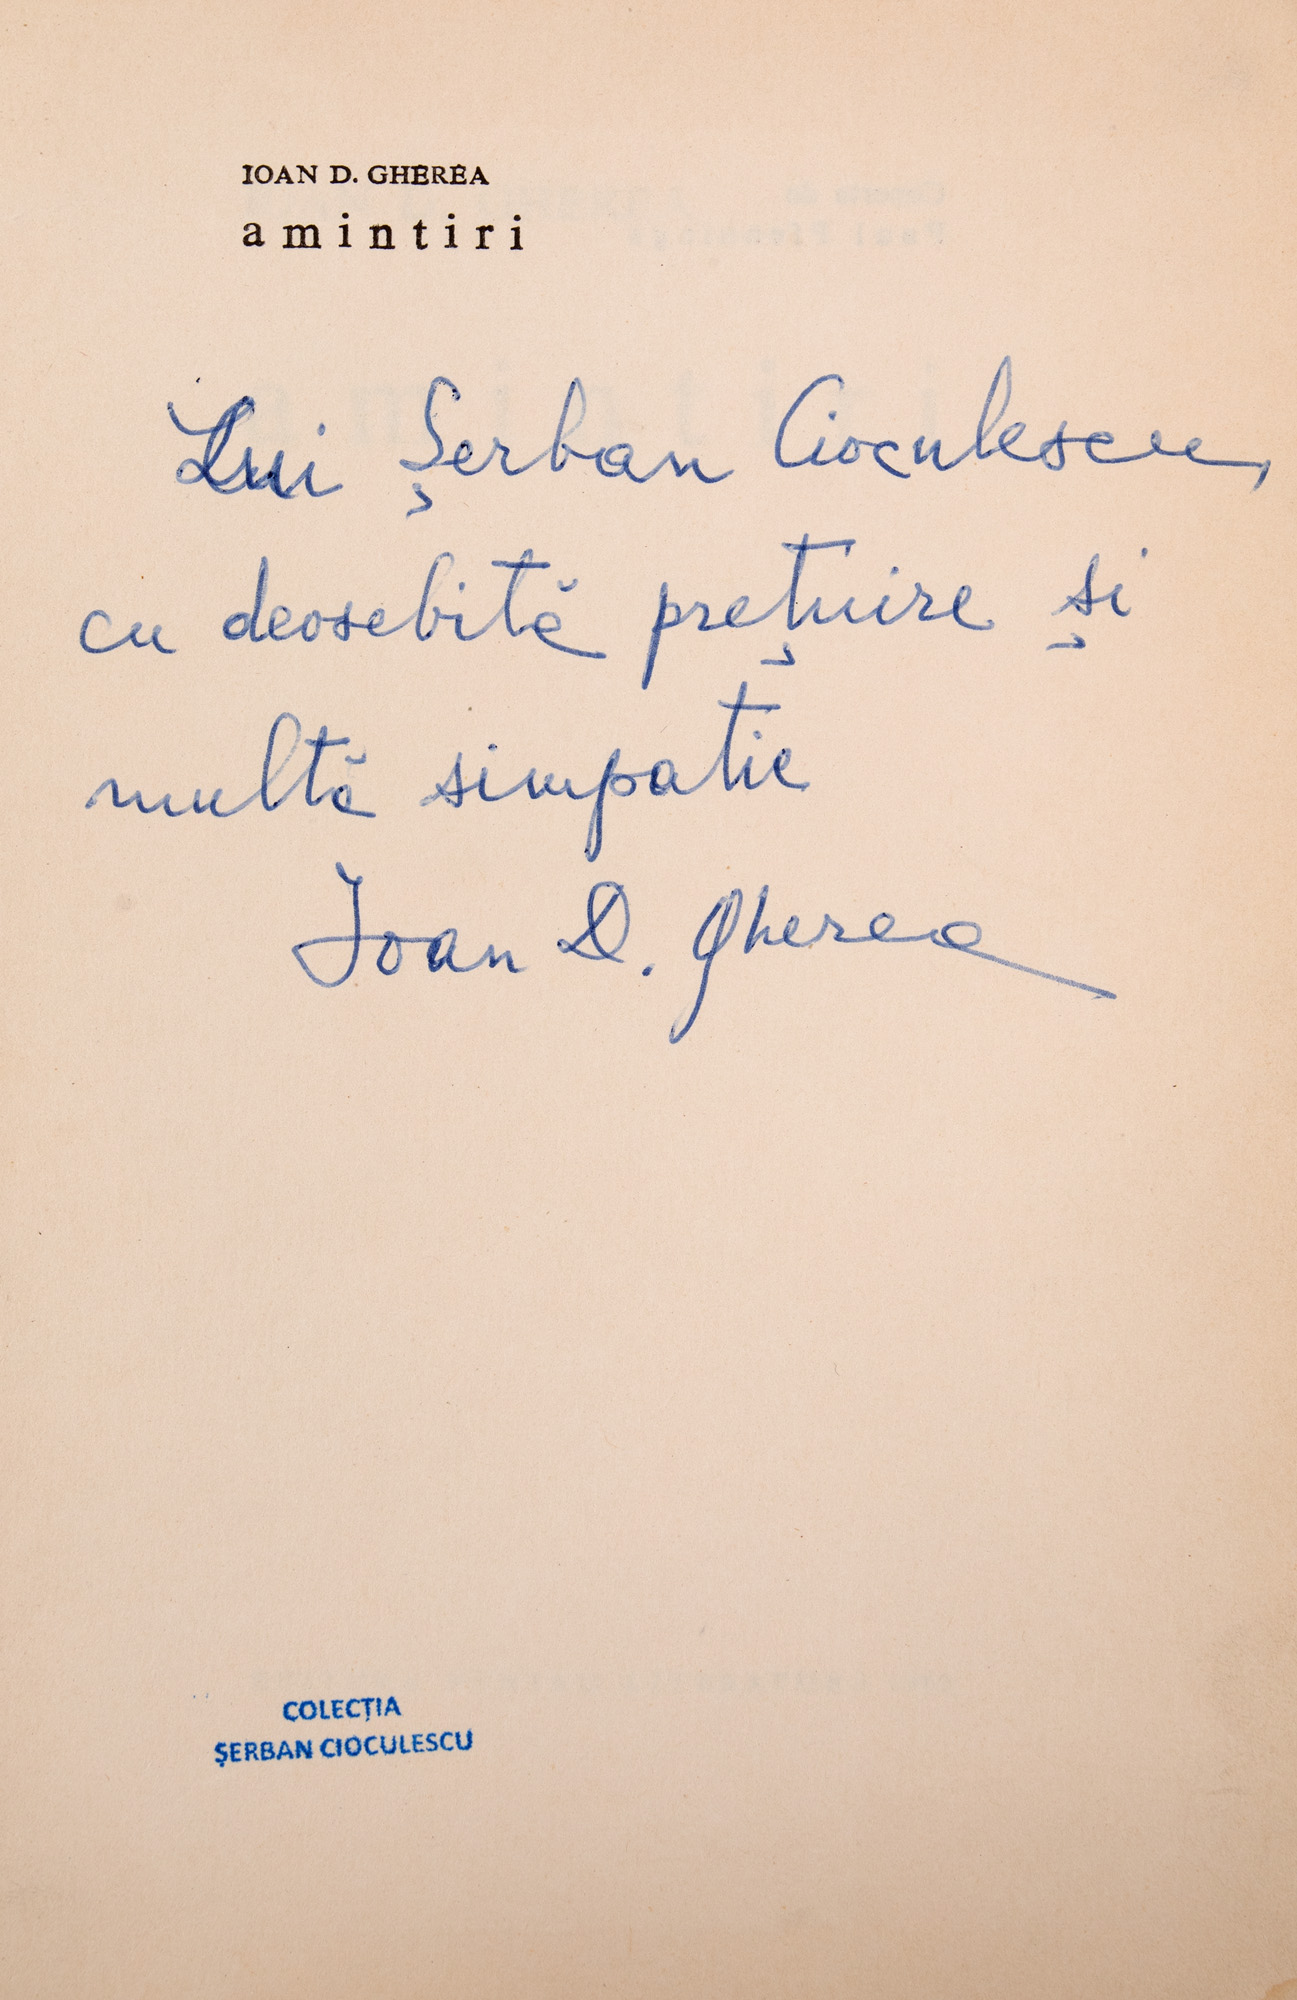 IOAN D. GHEREA
amintiri
Lui Șerban Cioculescu,
cu deosebită prețuire și
multă simpatie
Ioan D. Gherea
COLECȚIA
ȘERBAN CIOCULESCU